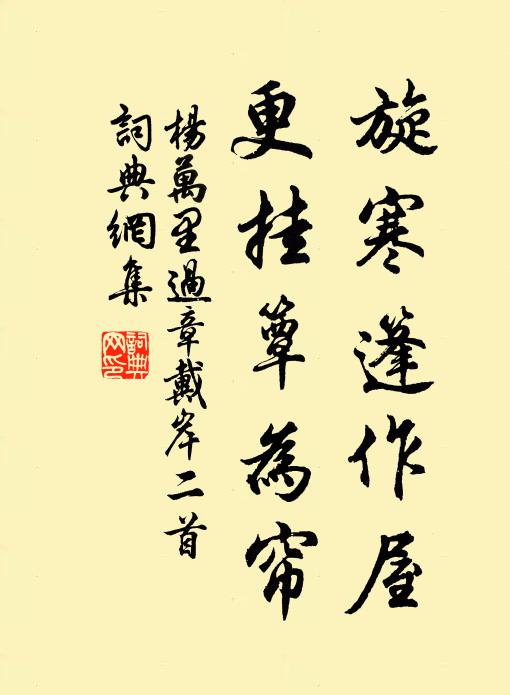 旋寒篷作屋
更挂簟為帘
楊萬里過章戴岸二首
詞典網集
詞典網印